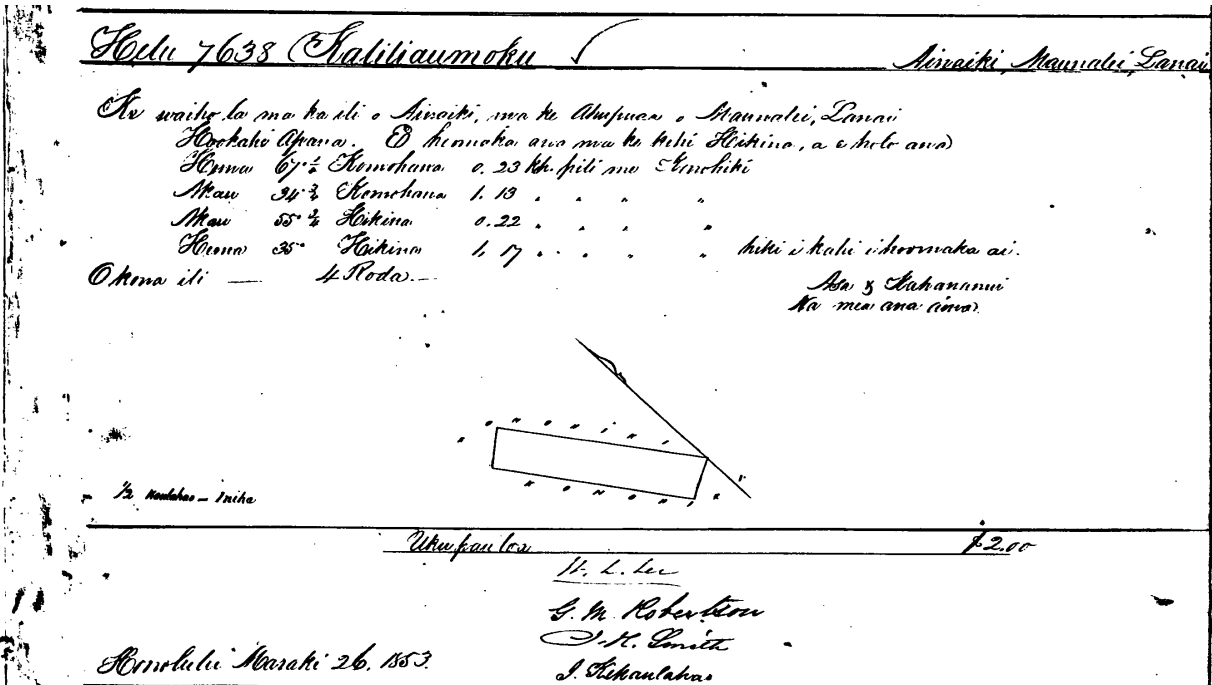 Helu 7638 Kaliliaumoku Ainaiki, Maunalei, Lanai
Ke waiho la ma ka ili o Ainaiki, ma ke Ahupuaa o Maunalei, Lanai
Hookahi Apana. E hoomaka ana ma ke kihi Hikina, a e holo ana
Hema 67° ½ Komohana 0.23 Kh. pili me Konohiki
Akau 34° ¾ Komohana 1.13 " " " "
Akau 55° ¾ Hikina 0.22 " " " "
Hema 35° Hikina 1.17 " " " " hiki i kahi i hoomaka ai.
Okona ili — 4 Roda.—
Asa & Kahananui
Na mea ana aina.
Konohiki
Konohiki
½ Kaulahao — 1 niha
Uku pau loa $2.00
W. L. Lee
G. M. Robertson
J. H. Smith
J. Kekaulahao
Honolulu Maraki 26, 1853.